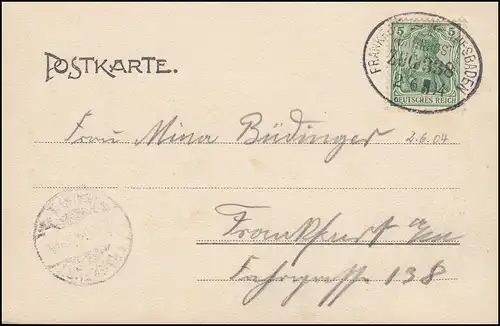 POSTKARTE.
5 5
FRANKFURT WIESBADEN
ZUG 338
2 6 04
DEUTSCHES REICH
Frau Mina Büdinger
2.6.04
Frankfurt a/m
Fahrgasse 138